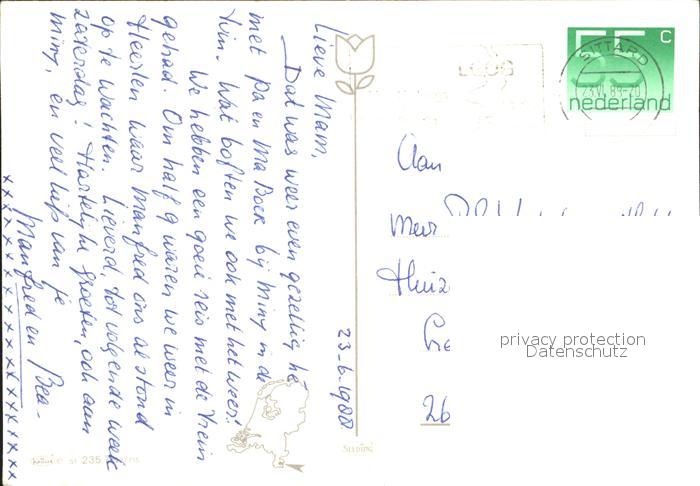 23-6-1988
Lieve Mam,
Dat was weer even gezellig hè
met Pa en Ma Bock bij Miny in de
tuin. Wat boften we ook met het weer!
We hebben een goeie reis met de trein
gehad. Om half 9 waren we weer in
Heerlen waar Manfred ons al stond
op te wachten. Lieverd, tot volgende week
zaterdag! Hartelijke groeten, ook aan
Miny, en veel liefs van je
Manfred en Bea-
xxxxxxxxxxxxxxxxx
SITTARD
55 c
nederland
Aan
Mevr
Huiz
26
privacy protection
Datenschutz
235